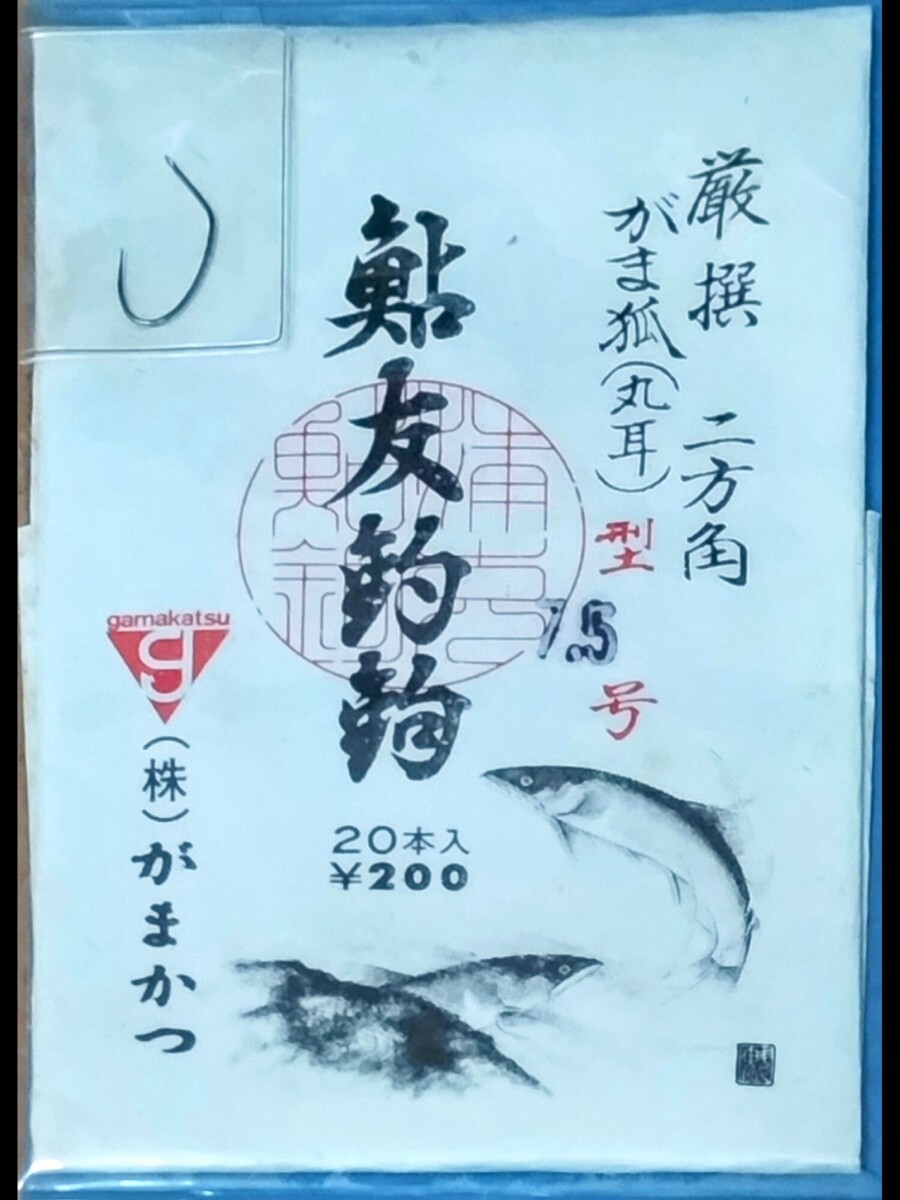 厳撰 二方角
がま狐(丸耳)型 7.5 号
鮎友釣鈎
20本入
¥200
gamakatsu
g
(株)がまかつ